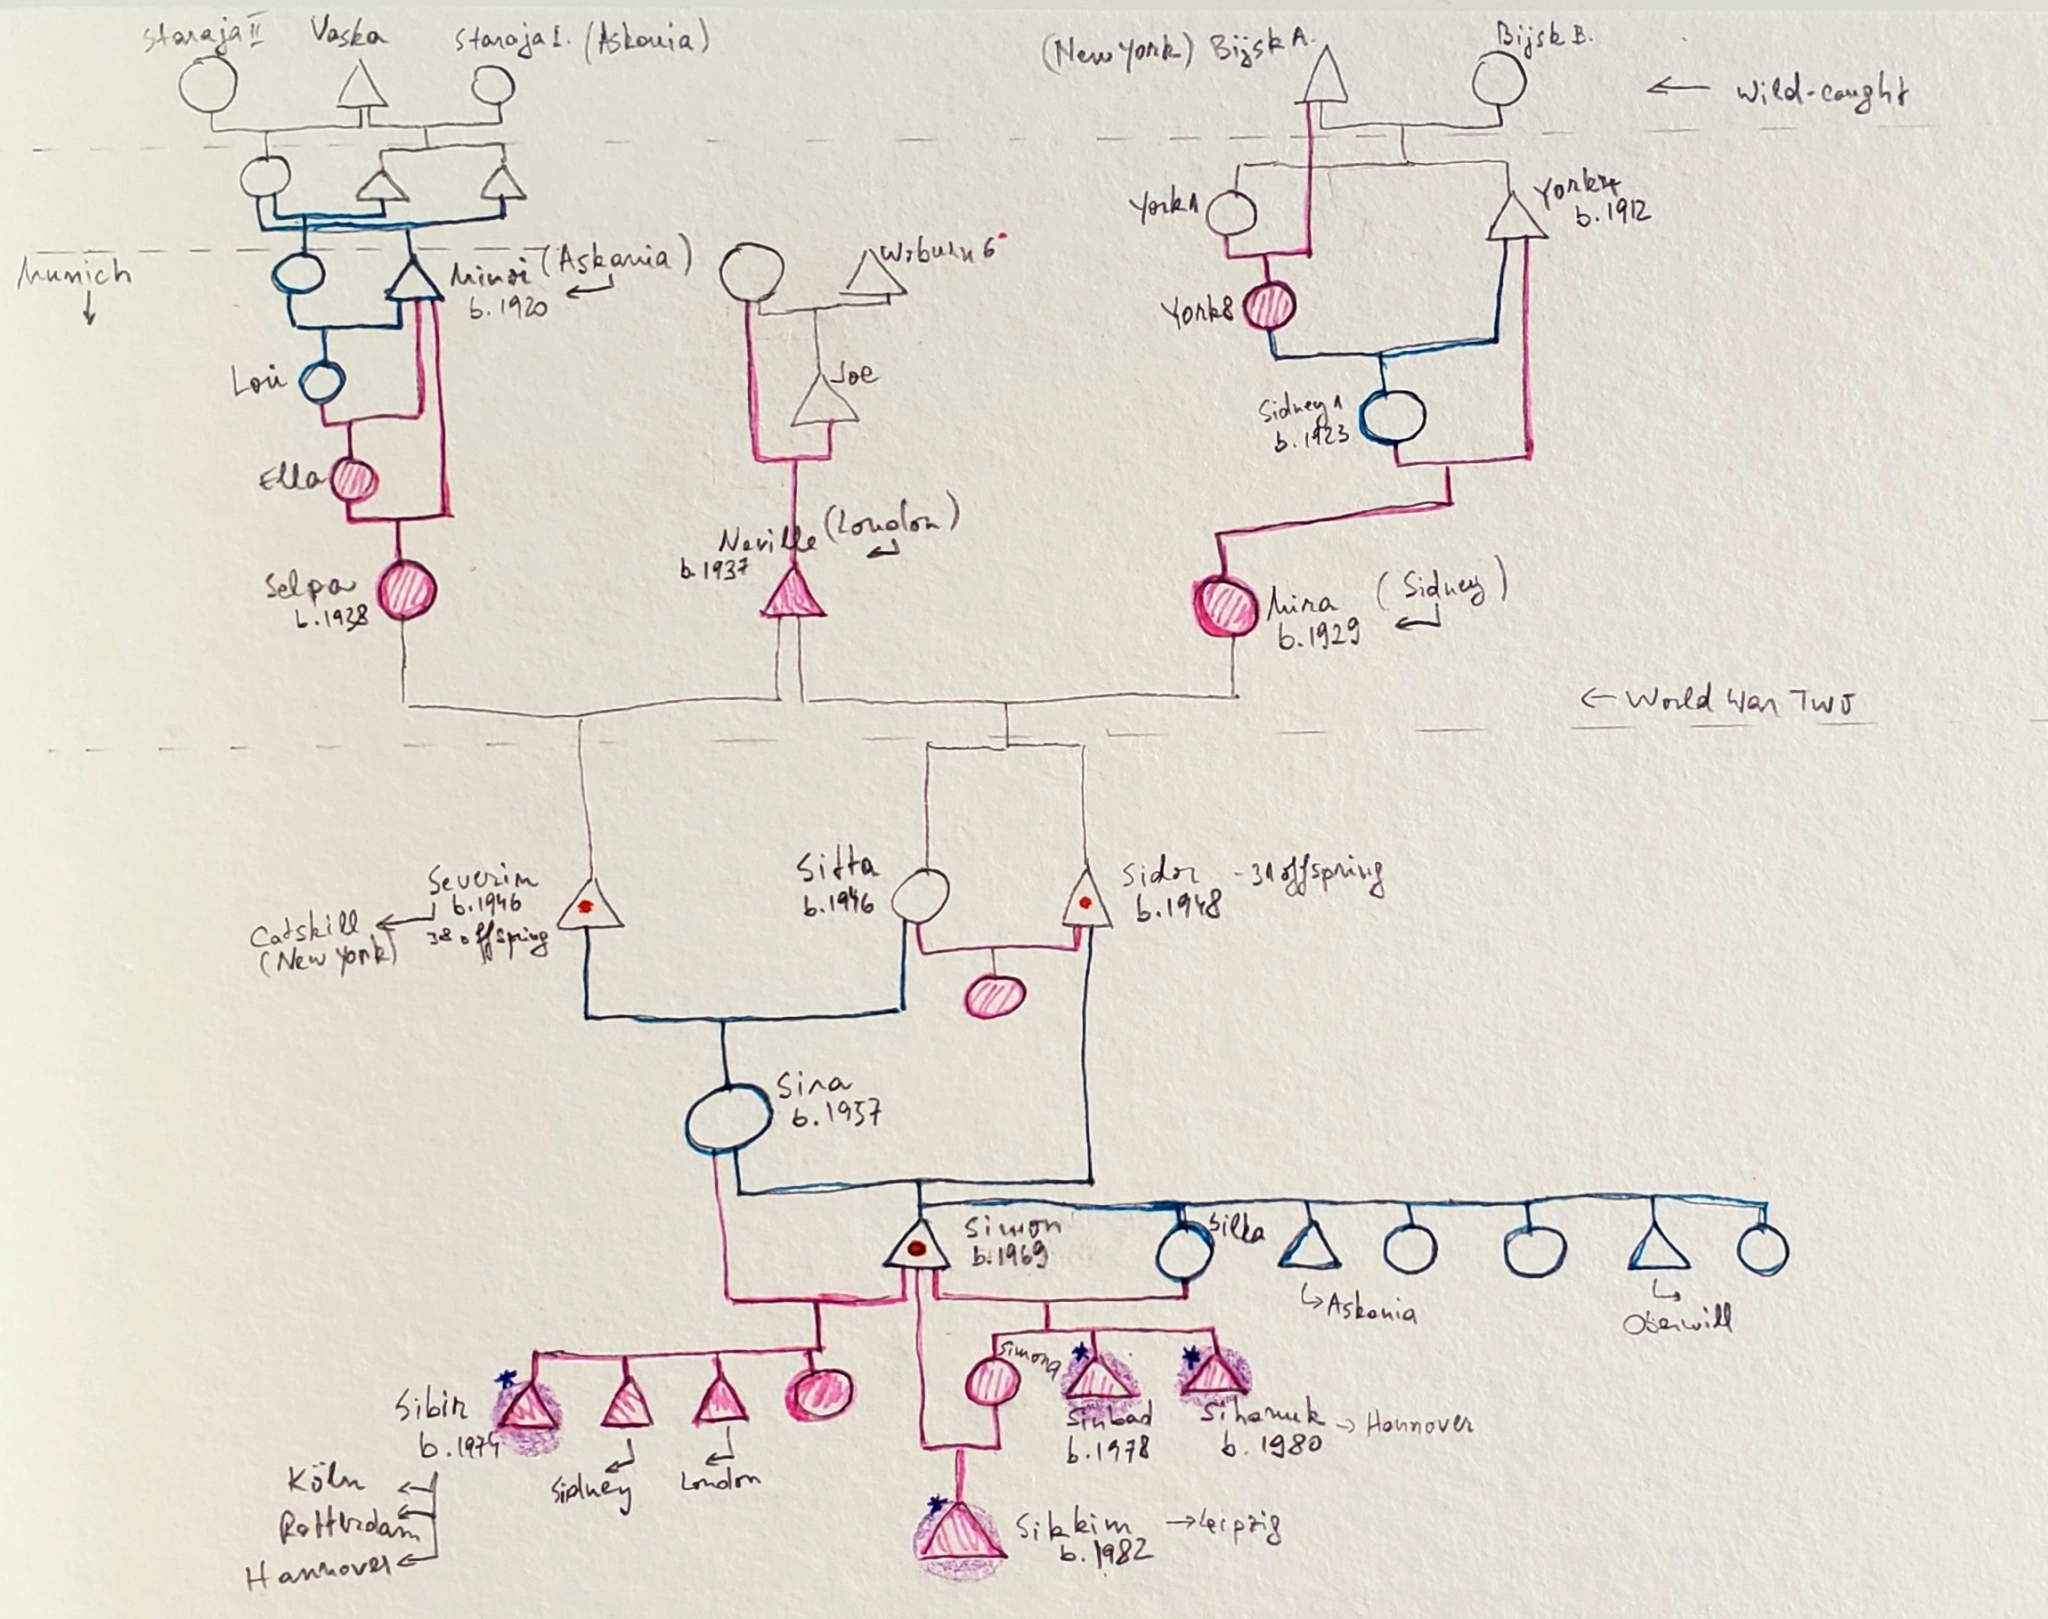 Staraja II
Vaska
Staraja I. (Askania)
(New York) Bijsk A.
Bijsk B.
← Wild-caught
York 1
York 4
b. 1912
Munich
↓
Minoi (Askania)
b. 1920
Woburn 6
York 8
Lori
Joe
Sidney 1
b. 1923
Ella
Neville (London)
b. 1937
Selpa
b. 1938
Mira (Sidney)
b. 1929
← World War Two
Severin
b. 1946
38 offspring
Catskill
(New York)
Sitta
b. 1946
Sidor - 31 offspring
b. 1948
Sira
b. 1957
Simon
b. 1969
Silka
Askania
Simona
Sibir
b. 1974
Sidney
London
Sinbad
b. 1978
Sihanuk → Hannover
b. 1980
Köln
Rotterdam
Hannover
Sikkim → Leipzig
b. 1982